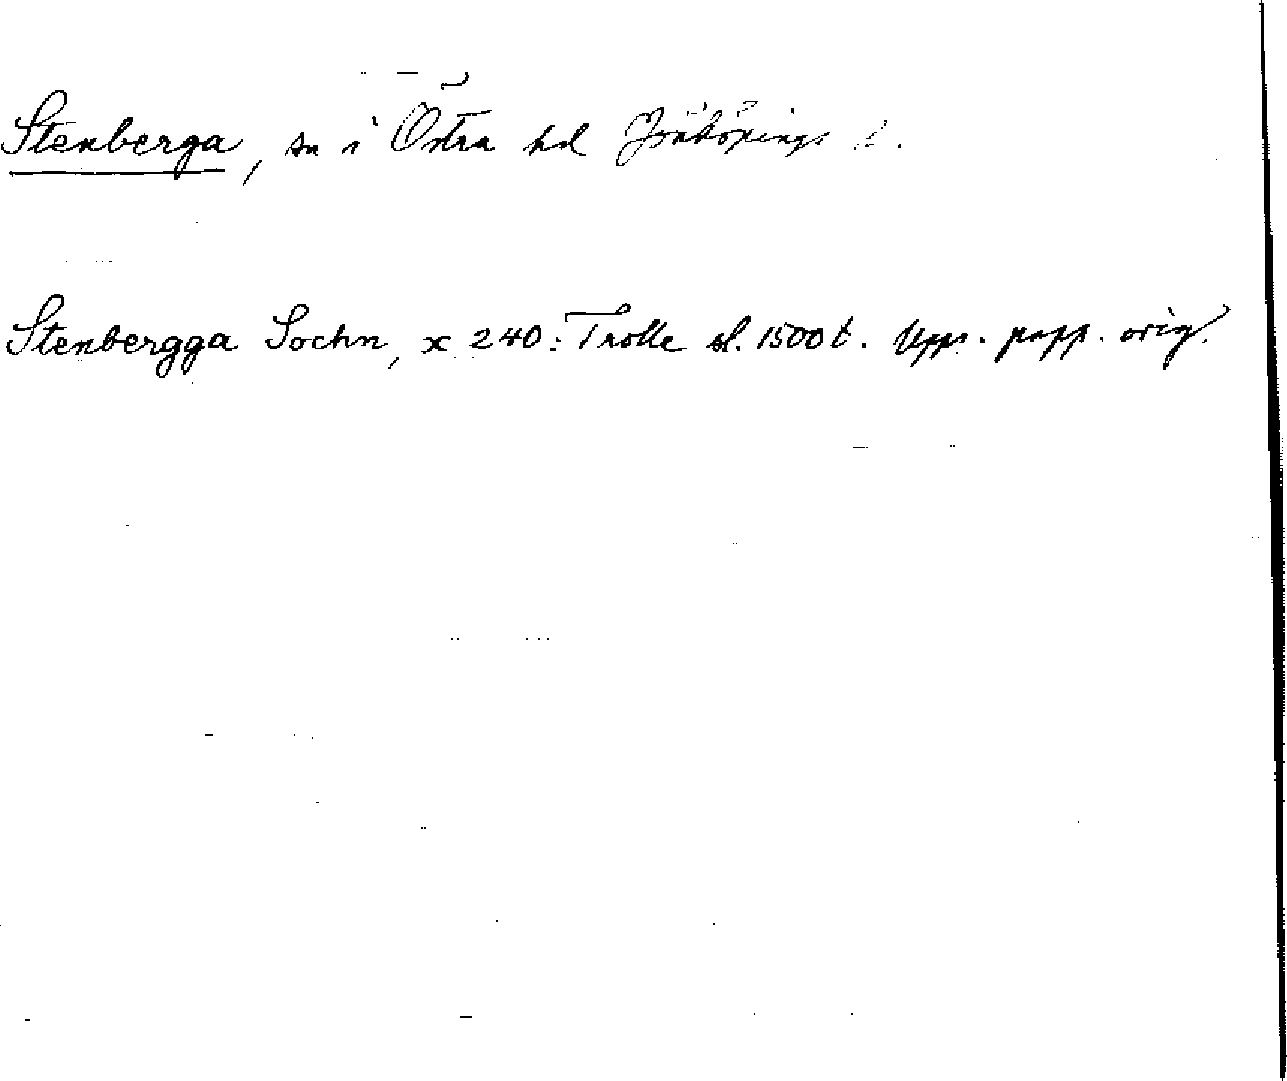 Stenberga, sn i Östra hd Jönköpings l.
Stenbergga Sochn, x 240: Trolle sl. 1500 t. Upps. papp. orig.